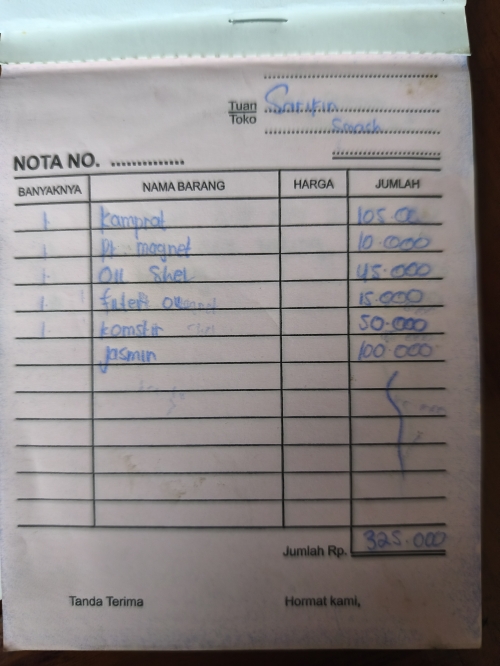 Tuan
Toko
Sarifin
Smash
NOTA NO. ...............
BANYAKNYA NAMA BARANG HARGA JUMLAH
1 kamprat 105.00
1 pt magnet 10.000
1 Oli Shel 45.000
1 15.000
1 komstir 50.000
Jasmin 100.000
Jumlah Rp. 325.000
Tanda Terima Hormat kami,